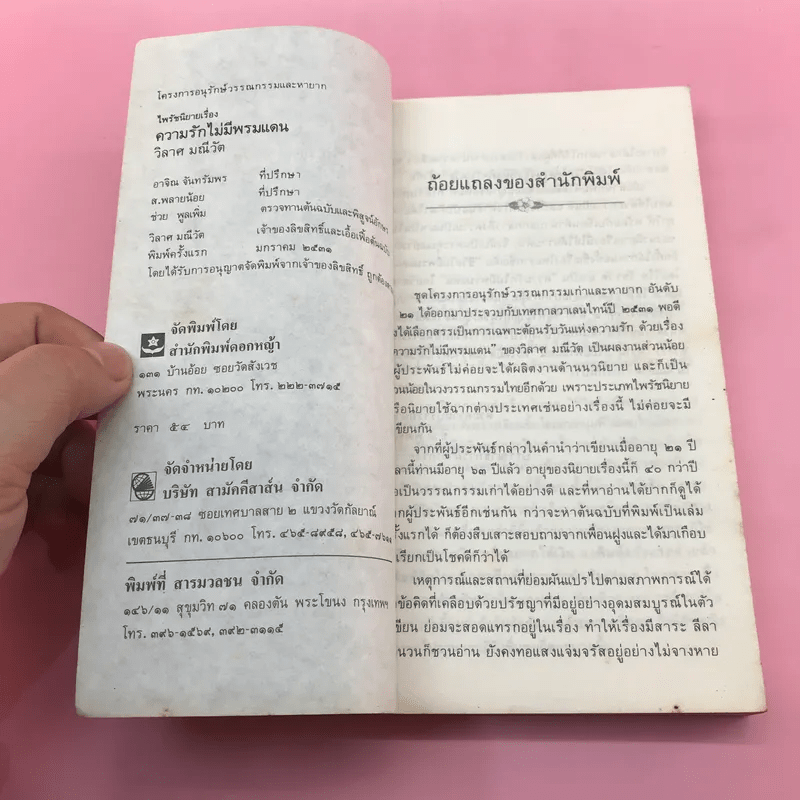 โครงการอนุรักษ์วรรณกรรมและหายาก
ไพรัชนิยายเรื่อง
ความรักไม่มีพรมแดน
วิลาศ มณีวัต
อาจิณ จันทรัมพร ที่ปรึกษา
ส.พลายน้อย ที่ปรึกษา
ช่วย พูลเพิ่ม ตรวจทานต้นฉบับและพิสูจน์อักษร
วิลาศ มณีวัต เจ้าของลิขสิทธิ์และเอื้อเฟื้อต้นฉบับ
พิมพ์ครั้งแรก มกราคม ๒๕๓๑
โดยได้รับการอนุญาตจัดพิมพ์จากเจ้าของลิขสิทธิ์
จัดพิมพ์โดย
สำนักพิมพ์ดอกหญ้า
๑๓๑ บ้านอ้อย ซอยวัดสังเวช
พระนคร กท. ๑๐๒๐๐ โทร. ๒๒๒-๓๗๑๕
ราคา ๕๔ บาท
จัดจำหน่ายโดย
บริษัท สามัคคีสาส์น จำกัด
๗๑/๓๗-๓๘ ซอยเทศบาลสาย ๒ แขวงวัดกัลยาณ์
เขตธนบุรี กท. ๑๐๖๐๐ โทร. ๔๖๕-๘๙๕๘,
พิมพ์ที่ สารมวลชน จำกัด
๑๔๖/๑๑ สุขุมวิท ๗๑ คลองตัน พระโขนง กรุงเทพฯ
โทร. ๓๙๖-๑๕๖๙, ๓๙๒-๓๑๑๕
ถ้อยแถลงของสำนักพิมพ์
ชุดโครงการอนุรักษ์วรรณกรรมเก่าและหายาก อันดับ
๒๑ ได้ออกมาประจวบกับเทศกาลวาเลนไทน์ปี ๒๕๓๑ พอดี
ได้เลือกสรรเป็นการเฉพาะต้อนรับวันแห่งความรัก ด้วยเรื่อง
ความรักไม่มีพรมแดน" ของวิลาศ มณีวัต เป็นผลงานส่วนน้อย
ผู้ประพันธ์ไม่ค่อยจะได้ผลิตงานด้านนวนิยาย และก็เป็น
ส่วนน้อยในวงวรรณกรรมไทยอีกด้วย เพราะประเภทไพรัชนิยาย
รือนิยายใช้ฉากต่างประเทศเช่นอย่างเรื่องนี้ ไม่ค่อยจะมี
เขียนกัน
จากที่ผู้ประพันธ์กล่าวในคำนำว่าเขียนเมื่ออายุ ๒๑ ปี
ลานี้ท่านมีอายุ ๖๓ ปีแล้ว อายุของนิยายเรื่องนี้ก็ ๔๐ กว่าปี
เป็นวรรณกรรมเก่าได้อย่างดี และที่หาอ่านได้ยากก็ดูได้
กผู้ประพันธ์อีกเช่นกัน กว่าจะหาต้นฉบับที่พิมพ์เป็นเล่ม
รั้งแรกได้ ก็ต้องสืบเสาะสอบถามจากเพื่อนฝูงและได้มาเกือบ
เรียกเป็นโชคดีก็ว่าได้
เหตุการณ์และสถานที่ย่อมผันแปรไปตามสภาพการณ์ได้
ข้อคิดที่เคลือบด้วยปรัชญาที่มีอยู่อย่างอุดมสมบูรณ์ในตัว
เขียน ย่อมจะสอดแทรกอยู่ในเรื่อง ทำให้เรื่องมีสาระ ลีลา
นวนก็ชวนอ่าน ยังคงทอแสงแจ่มจรัสอยู่อย่างไม่จางหาย